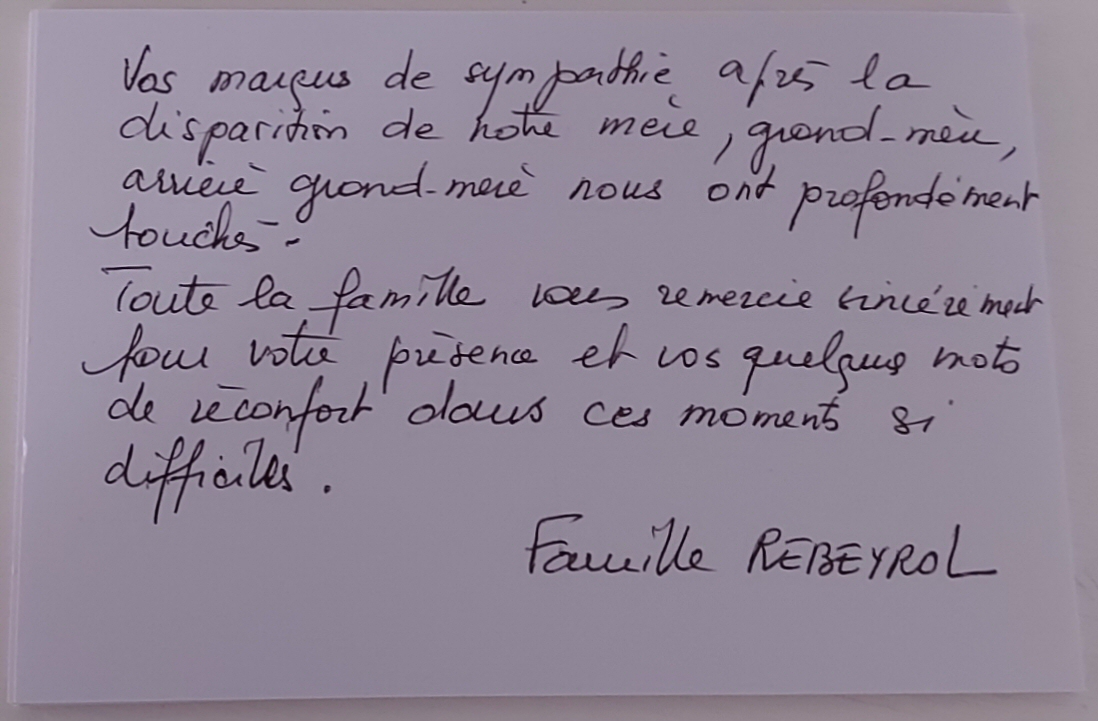 Vos marques de sympathie après la
disparition de notre mère, grand-mère,
arrière grand-mère nous ont profondément
touchés-
Toute la famille vous remercie sincérement
pour votre présence et vos quelques mots
de réconfort dans ces moments si
difficiles.
Famille REBEYROL